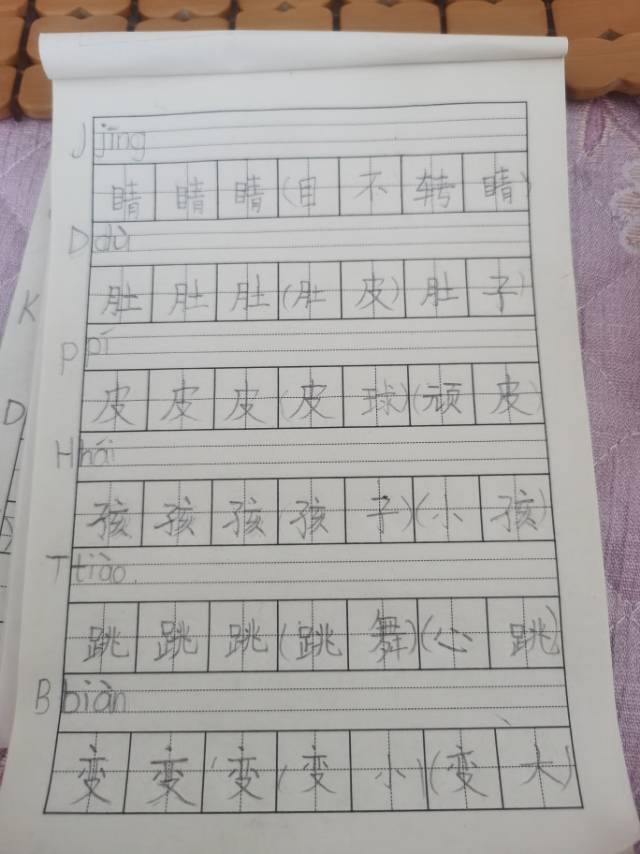 J jīng
睛 睛 睛 (目 不 转 睛)
D dù
肚 肚 肚 (肚 皮) 肚 子)
P pí
皮 皮 皮 (皮 球) (顽 皮)
H hái
孩 孩 孩 孩 子) (小 孩)
T tiào
跳 跳 跳 (跳 舞) (心 跳)
B biàn
变 变 变 (变 小 (变 大)
K
D